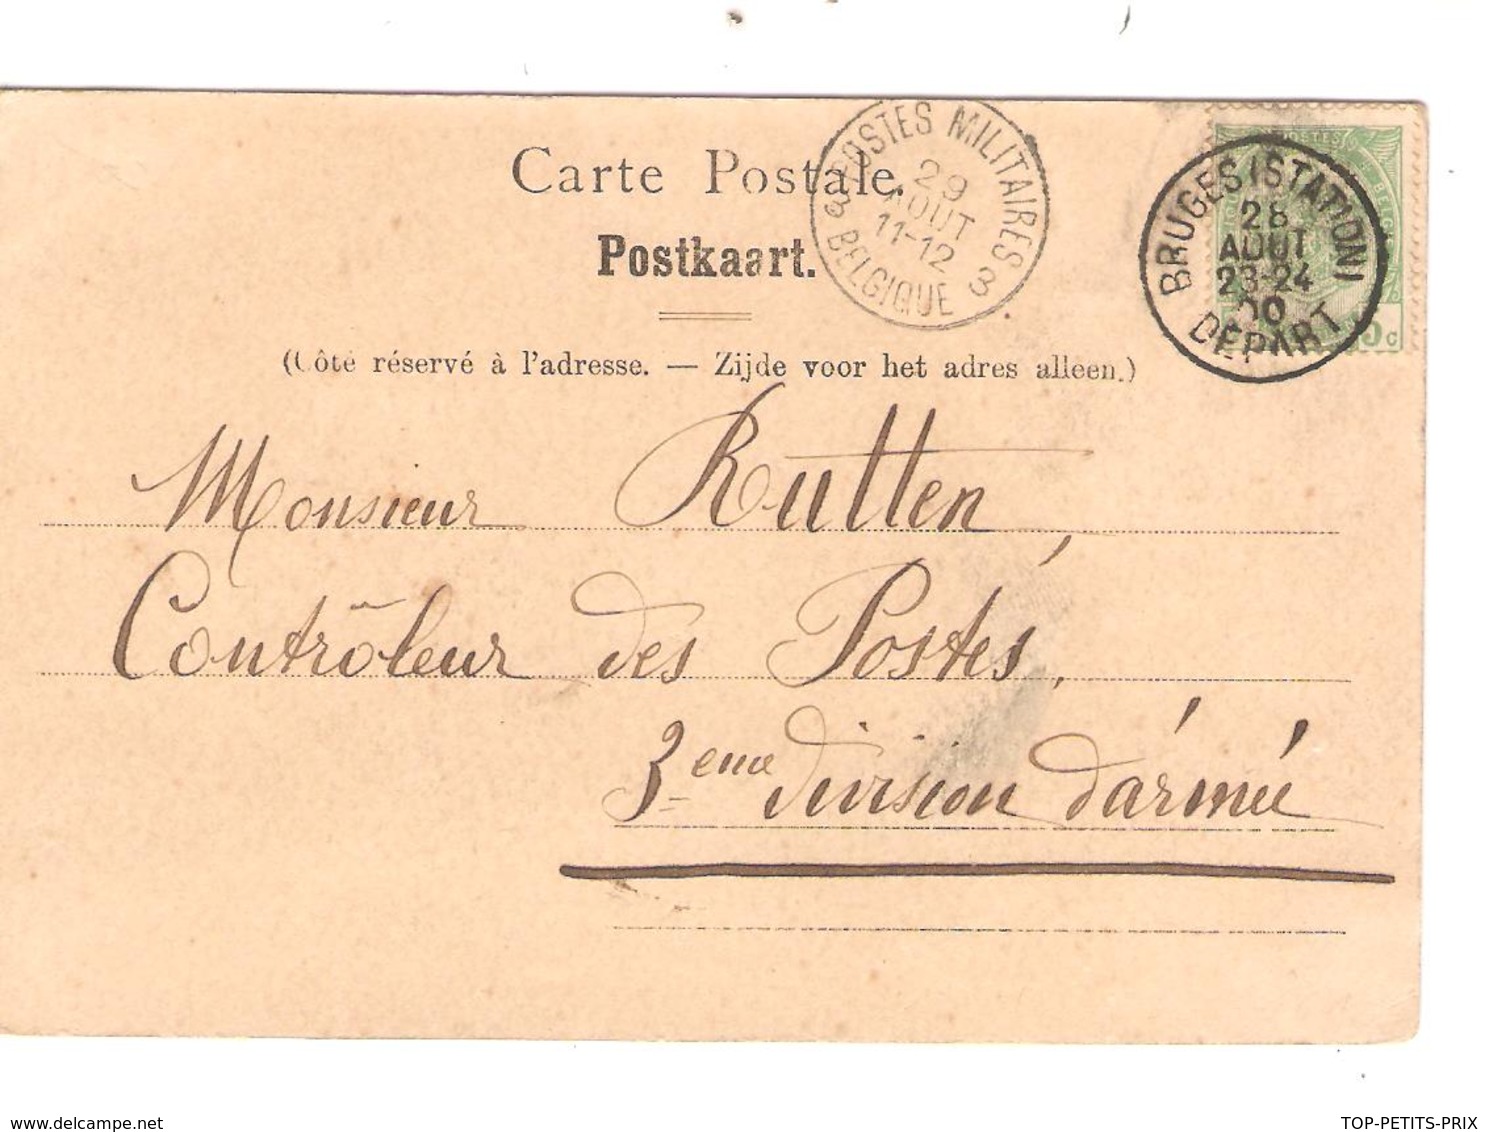 Carte Postale.
Postkaart.
(Côté réservé à l'adresse. — Zijde voor het adres alleen.)
POSTES MILITAIRES
29
AOUT
11-12
3 BELGIQUE 3
POSTES
BELGIQUE
5c
BRUGES (STATION)
28
AOUT
23-24
00
DÉPART
Monsieur Rutten,
Contrôleur des Postes,
3eme division d'armée
delcampe.net
TOP-PETITS-PRIX